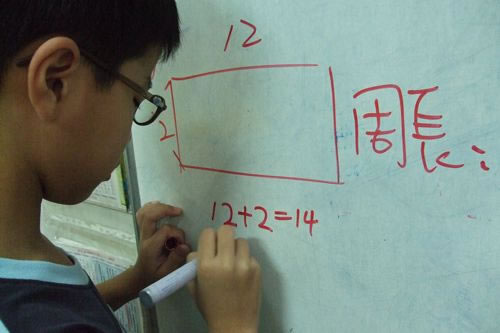 12
2
周長
12+2=14